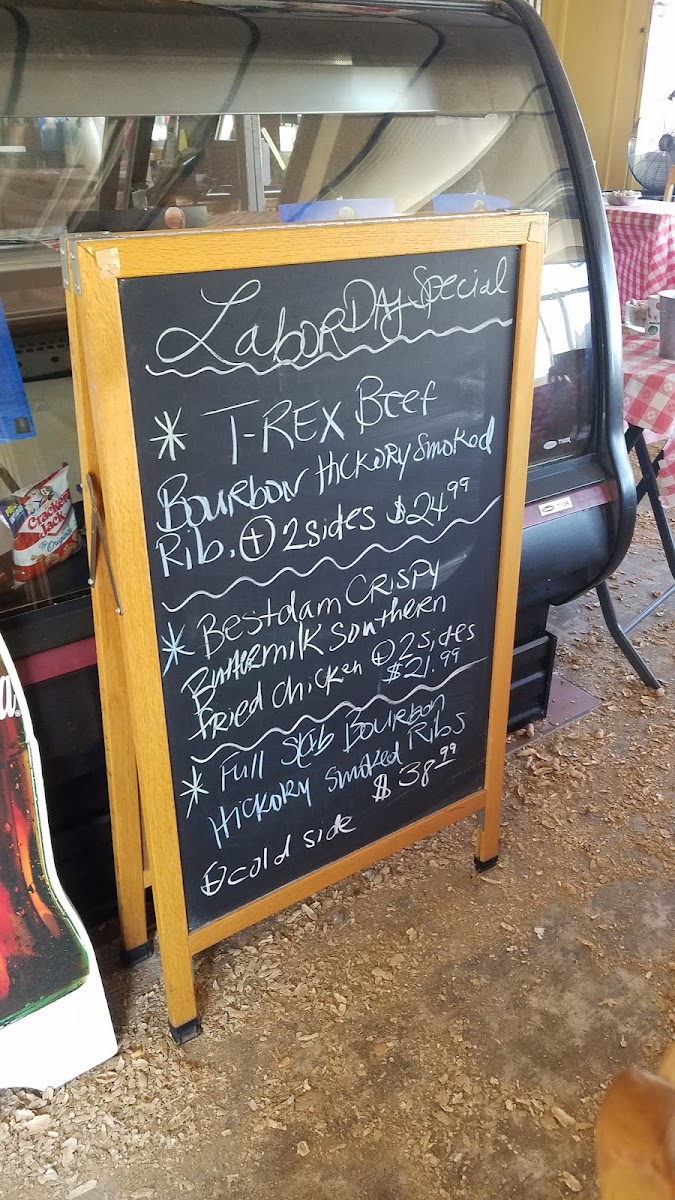 Labor Day Special
* T-REX Beef
Bourbon Hickory Smoked
Rib. + 2 sides $24.99
* Bestdam Crispy
Buttermilk Southern
Fried Chicken + 2 sides
$21.99
* Full Slab Bourbon
Hickory Smoked Ribs
$38.99
+ cold side
Cracker
Jack
The Original
TYLER